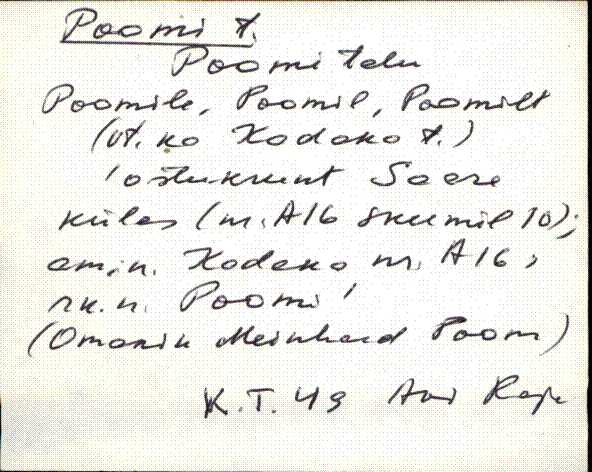 Poomi t.
Poomi talu
Poomile, Poomil, Poomilt
(vt. ka Kodaka t.)
'ostukrunt Saare
külas (nr. A16 skeemil 10);
am. n. Kodaka nr. A16,
rk. n. Poomi'
(Omanik Meinhard Poom)
K.T. 49 Avi Raja